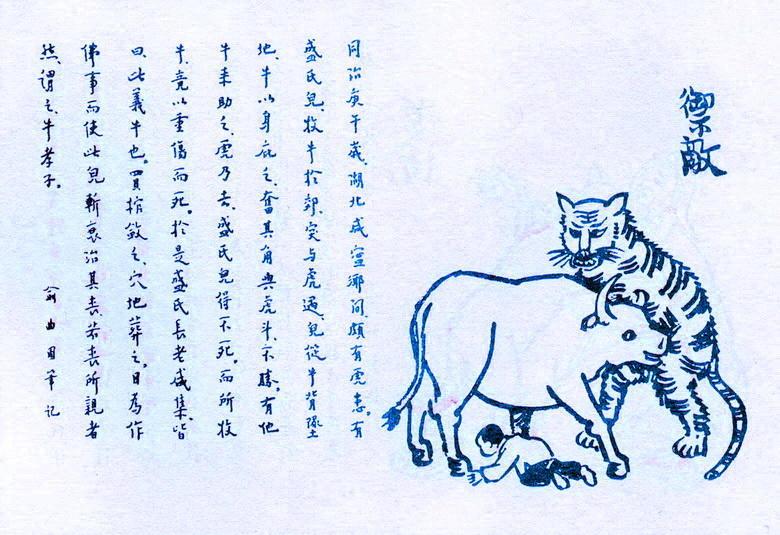 禦敵
同治庚午歲、湖北咸寧鄉间、頗有虎患。有
盛氏兒、牧牛於郊、突与虎遇、兒從牛背墜
地、牛以身庇之、奮其角與虎斗、不勝。有他
牛来助之、虎乃去、盛氏兒得不死。而所牧
牛、竟以重傷而死。於是盛氏長老咸集、皆
曰、此義牛也。買棺斂之、穴地葬之。日為作
佛事而使此兒斬衰治其喪、若喪所親者
然、謂之牛孝子。
俞曲园筆记